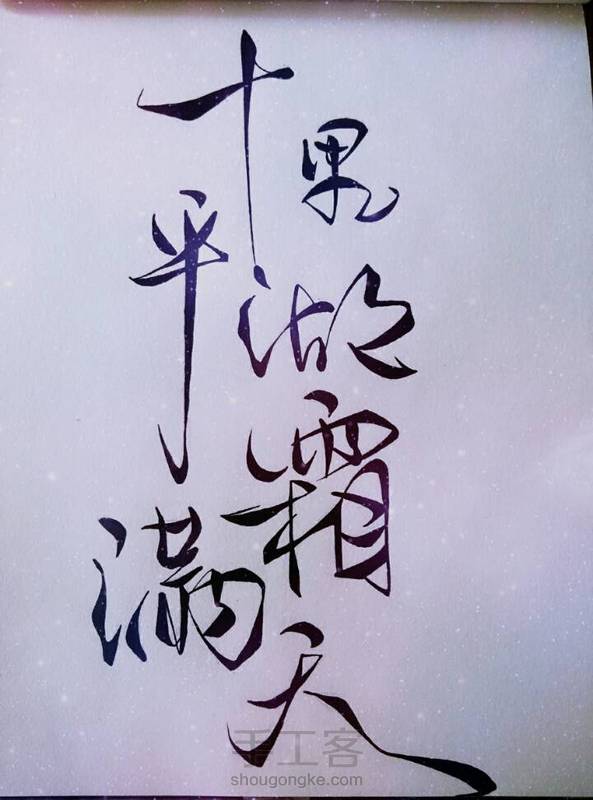 十里平湖霜满天
手工客
shougongke.com